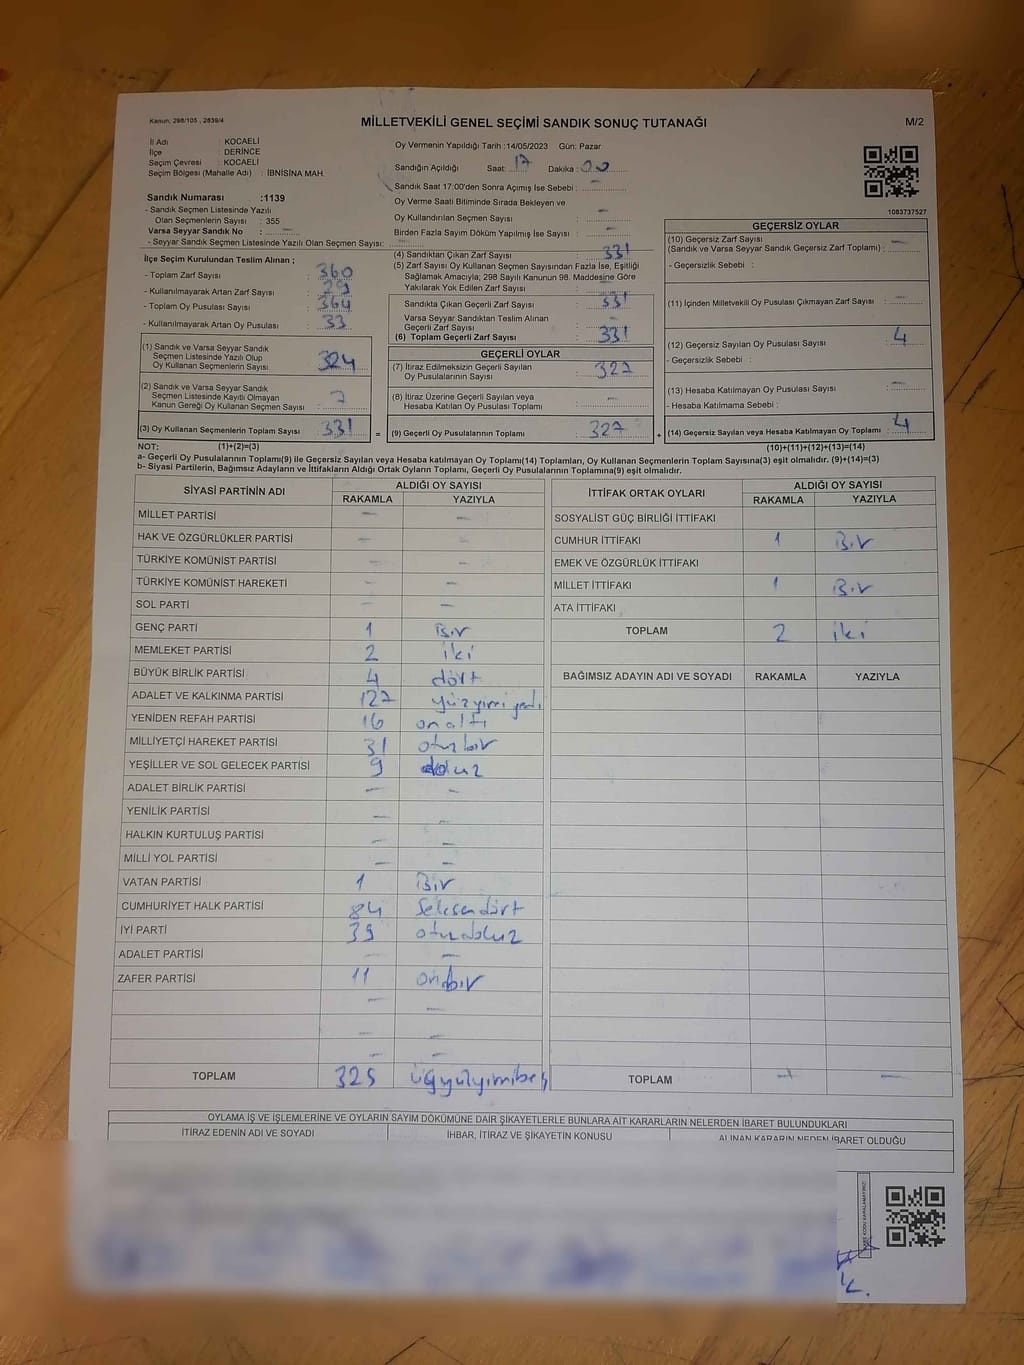 Kanun; 298/105 , 2839/4
MİLLETVEKİLİ GENEL SEÇİMİ SANDIK SONUÇ TUTANAĞI
M/2
İl Adı : KOCAELİ
İlçe : DERİNCE
Seçim Çevresi : KOCAELİ
Seçim Bölgesi (Mahalle Adı) : İBNİSİNA MAH.
Oy Vermenin Yapıldığı Tarih :14/05/2023 Gün: Pazar
Sandığın Açıldığı Saat: 17 Dakika : 00
Sandık Saat 17:00'den Sonra Açımış İse Sebebi : –
Oy Verme Saati Bitiminde Sırada Bekleyen ve
Oy Kullandırılan Seçmen Sayısı : –
Birden Fazla Sayım Döküm Yapılmış İse Sayısı : –
1083737527
Sandık Numarası :1139
- Sandık Seçmen Listesinde Yazılı
Olan Seçmenlerin Sayısı : 355
Varsa Seyyar Sandık No : –
- Seyyar Sandık Seçmen Listesinde Yazılı Olan Seçmen Sayısı: –
İlçe Seçim Kurulundan Teslim Alınan ;
- Toplam Zarf Sayısı : 360
- Kullanılmayarak Artan Zarf Sayısı : 29
- Toplam Oy Pusulası Sayısı : 364
- Kullanılmayarak Artan Oy Pusulası : 33
(1) Sandık ve Varsa Seyyar Sandık
Seçmen Listesinde Yazılı Olup
Oy Kullanan Seçmenlerin Sayısı : 324
(2) Sandık ve Varsa Seyyar Sandık
Seçmen Listesinde Kayıtlı Olmayan
Kanun Gereği Oy Kullanan Seçmen Sayısı : 7
(3) Oy Kullanan Seçmenlerin Toplam Sayısı : 331 =
(4) Sandıktan Çıkan Zarf Sayısı : 331
(5) Zarf Sayısı Oy Kullanan Seçmen Sayısından Fazla İse, Eşitliği
Sağlamak Amacıyla; 298 Sayılı Kanunun 98. Maddesine Göre
Yakılarak Yok Edilen Zarf Sayısı :
Sandıkta Çıkan Geçerli Zarf Sayısı : 331
Varsa Seyyar Sandıktan Teslim Alınan
Geçerli Zarf Sayısı : –
(6) Toplam Geçerli Zarf Sayısı : 331
GEÇERLİ OYLAR
(7) İtiraz Edilmeksizin Geçerli Sayılan
Oy Pusulalarının Sayısı : 327
(8) İtiraz Üzerine Geçerli Sayılan veya
Hesaba Katılan Oy Pusulası Toplamı : –
(9) Geçerli Oy Pusulalarının Toplamı : 327 +
GEÇERSİZ OYLAR
(10) Geçersiz Zarf Sayısı
(Sandık ve Varsa Seyyar Sandık Geçersiz Zarf Toplamı) : –
- Geçersizlik Sebebi :
(11) İçinden Milletvekili Oy Pusulası Çıkmayan Zarf Sayısı : –
(12) Geçersiz Sayılan Oy Pusulası Sayısı : 4
- Geçersizlik Sebebi :
(13) Hesaba Katılmayan Oy Pusulası Sayısı : –
- Hesaba Katılmama Sebebi :
(14) Geçersiz Sayılan veya Hesaba Katılmayan Oy Toplamı : 4
NOT: (1)+(2)=(3) (10)+(11)+(12)+(13)=(14)
a- Geçerli Oy Pusulalarının Toplamı(9) ile Geçersiz Sayılan veya Hesaba katılmayan Oy Toplamı(14) Toplamları, Oy Kullanan Seçmenlerin Toplam Sayısına(3) eşit olmalıdır. (9)+(14)=(3)
b- Siyasi Partilerin, Bağımsız Adayların ve İttifakların Aldığı Ortak Oyların Toplamı, Geçerli Oy Pusulalarının Toplamına(9) eşit olmalıdır.
SİYASİ PARTİNİN ADI ALDIĞI OY SAYISI
RAKAMLA YAZIYLA
MİLLET PARTİSİ – –
HAK VE ÖZGÜRLÜKLER PARTİSİ – –
TÜRKİYE KOMÜNİST PARTİSİ – –
TÜRKİYE KOMÜNİST HAREKETİ – –
SOL PARTİ – –
GENÇ PARTİ 1 Bir
MEMLEKET PARTİSİ 2 iki
BÜYÜK BİRLİK PARTİSİ 4 dört
ADALET VE KALKINMA PARTİSİ 127 yüzyirmi yedi
YENİDEN REFAH PARTİSİ 16 on altı
MİLLİYETÇİ HAREKET PARTİSİ 31 otuzbir
YEŞİLLER VE SOL GELECEK PARTİSİ 9 dokuz
ADALET BİRLİK PARTİSİ – –
YENİLİK PARTİSİ – –
HALKIN KURTULUŞ PARTİSİ – –
MİLLİ YOL PARTİSİ – –
VATAN PARTİSİ 1 Bir
CUMHURİYET HALK PARTİSİ 84 Seksendört
İYİ PARTİ 39 otuzdokuz
ADALET PARTİSİ – –
ZAFER PARTİSİ 11 onbir
– –
– –
– –
TOPLAM 325 üçyüzyirmibeş
İTTİFAK ORTAK OYLARI ALDIĞI OY SAYISI
RAKAMLA YAZIYLA
SOSYALİST GÜÇ BİRLİĞİ İTTİFAKI
CUMHUR İTTİFAKI 1 Bir
EMEK VE ÖZGÜRLÜK İTTİFAKI
MİLLET İTTİFAKI 1 Bir
ATA İTTİFAKI
TOPLAM 2 iki
BAĞIMSIZ ADAYIN ADI VE SOYADI RAKAMLA YAZIYLA
TOPLAM – –
OYLAMA İŞ VE İŞLEMLERİNE VE OYLARIN SAYIM DÖKÜMÜNE DAİR ŞİKAYETLERLE BUNLARA AİT KARARLARIN NELERDEN İBARET BULUNDUKLARI
İTİRAZ EDENİN ADI VE SOYADI İHBAR, İTİRAZ VE ŞİKAYETİN KONUSU ALINAN KARARIN NEDEN İBARET OLDUĞU